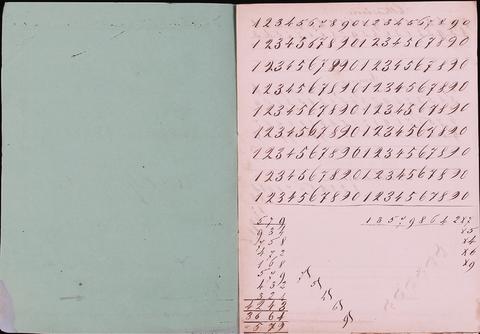 1234567890 1234567890
1234567890 1234567890
1234567890 1234567890
1234567890 1234567890
1234567890 1234567890
1234567890 1234567890
1234567890 1234567890
1234567890 1234567890
1234567890 1234567890
579 135798642x7
934 x5
758 x4
472 x6
168 x9
579
432
321
4243
3664
579